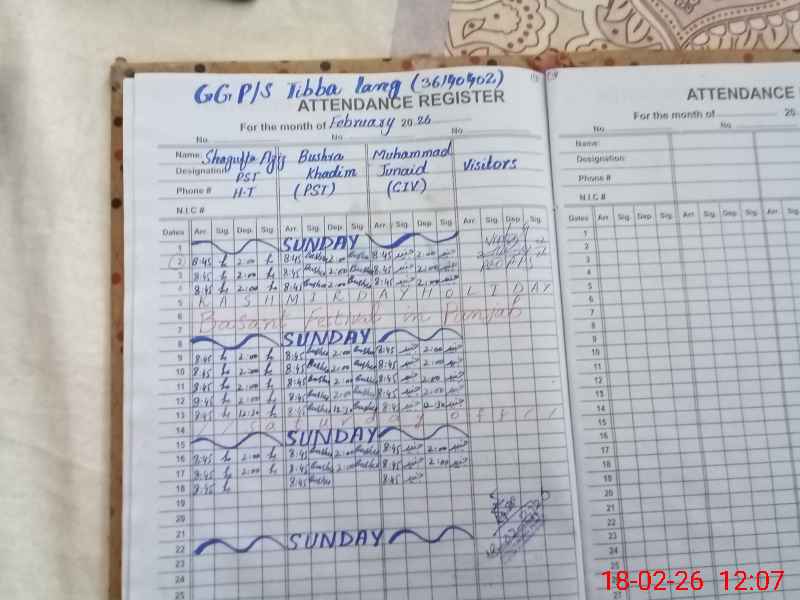 GGP/S Tibba lang (36140402)
ATTENDANCE REGISTER
For the month of February 2026
No No No
Name Shagufta Aziz Bushra Khadim Muhammad Junaid Visitors
Designation PST H-T (PST) (CIV)
Phone #
N.I.C #
Dates Arr. Sig. Dep. Sig. Arr. Sig. Dep. Sig. Arr. Sig. Dep. Sig. Arr. Sig. Dep. Sig.
1 SUNDAY
2 8:45 2:00 8:45 Bushra 2:00 Bushra 8:45 2:00
3 8:45 2:00 8:45 Bushra 2:00 Bushra 8:45 2:00
4 8:45 2:00 8:45 Bushra 2:00 Bushra 8:45 2:00
5 KASHMIR DAY HOLIDAY
6 Basant Festival in Punjab
7
8 SUNDAY
9 8:45 2:00 8:45 Bushra 2:00 Bushra 8:45 2:00
10 8:45 2:00 8:45 Bushra 2:00 Bushra 8:45 2:00
11 8:45 2:00 8:45 Bushra 2:00 Bushra 8:45 2:00
12 8:45 2:00 8:45 Bushra 2:00 Bushra 8:45 2:00
13 8:45 12:30 8:45 Bushra 12:30 Bushra 8:45 12:30
14 Saturday off
15 SUNDAY
16 8:45 2:00 8:45 Bushra 2:00 Bushra 8:45 2:00
17 8:45 2:00 8:45 Bushra 2:00 Bushra 8:45 2:00
18 8:45 8:45 Bushra 8:45
19
20
21
22 SUNDAY
23
24
25
ATTENDANCE
For the month of 20
No No
Name:
Designation:
Phone #
N.I.C #
Dates Arr. Sig. Dep. Sig. Arr. Sig. Dep. Sig. Arr. Sig.
1
2
3
4
5
6
7
8
9
10
11
12
13
14
15
16
17
18
19
20
21
22
23
24
25
26
27
18-02-26 12:07